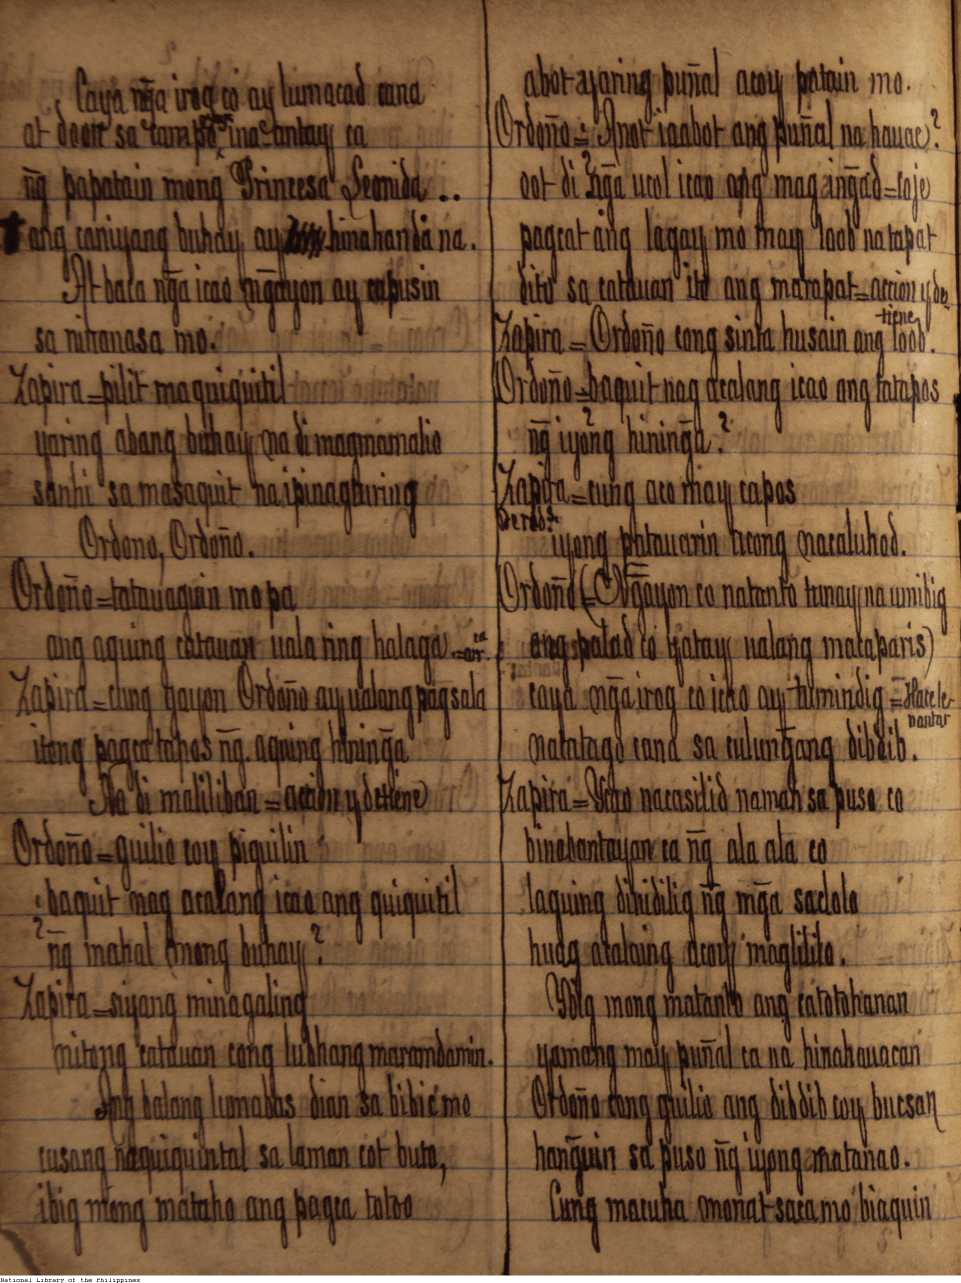 Caya ng̃a irog co ay lumacad cana
at doon sa tampo ina antay ca
ng̃ papatain mong Princesa Leonida ..
ang caniyang buhay ay hinahandá na.
At baca ng̃a icao ng̃ayon ay capusin
sa ninanasa mo.
Zapira = pilit maquiquitil
yaring abang buhay na di magmamaliu
sanhi sa masaquit na ipinaghiring
Ordono, Ordoño.
Ordoño = tatauaguin mo pa
ang aquing catauan uala ring halaga
Zapira = cung gayon Ordoño ay ualang pagsala
itong pagcatapos ng̃ aquing hining̃a
Na di maliliban = accion y detiene
Ordoño = guilio coy piguilin
baquit nag acalang icao ang quiquitil
ng̃ mahal mong buhay?
Zapira = siyang minagaling
nitong catauan cong lubhang maramdamin.
Ang balang lumabas dian sa bibic mo
cusang naquiquintal sa laman cot buto,
ibig mong mataho ang pagca totoo
abot ayaring puñal acoy patain mo.
Ordoño = Anot iaabot ang puñal na hauac?
oot di ng̃a ucol icao ang mag ing̃ad =
pagcat ang lagay mo may loob na tapat
dito sa catauan ito ang marapat = accion y detiene
Zapira = Ordoño cong sinta husain ang loob.
Ordoño = baquit nag acalang icao ang tatapos
ng̃ iyong hining̃a?
Zapira = cung aco may capos
iyong patauarin ticong nacaluhod.
Ordoño (= Ng̃ayon co natanto tunay na umibig
ang palad co yatay ualang macaparis)
caya ng̃a irog co icao ay tumindig = Hace levantar
natatago cana sa culung̃ang dibdib.
Zapira = Icao nacasilid naman sa puso co
binabantayan ca ng̃ ala ala co
laguing dinidilig ng̃ mg̃a saclolo
huag acalaing acoy maglililo.
Ibig mong matanto ang catotohanan
yamang may puñal ca na hinahauacan
Ordoño cong guilio ang dibdib coy bucsan
hang̃uin sa puso ng̃ iyong matanao.
Cung macuha monat saca mo biaquin
National Library of the Philippines